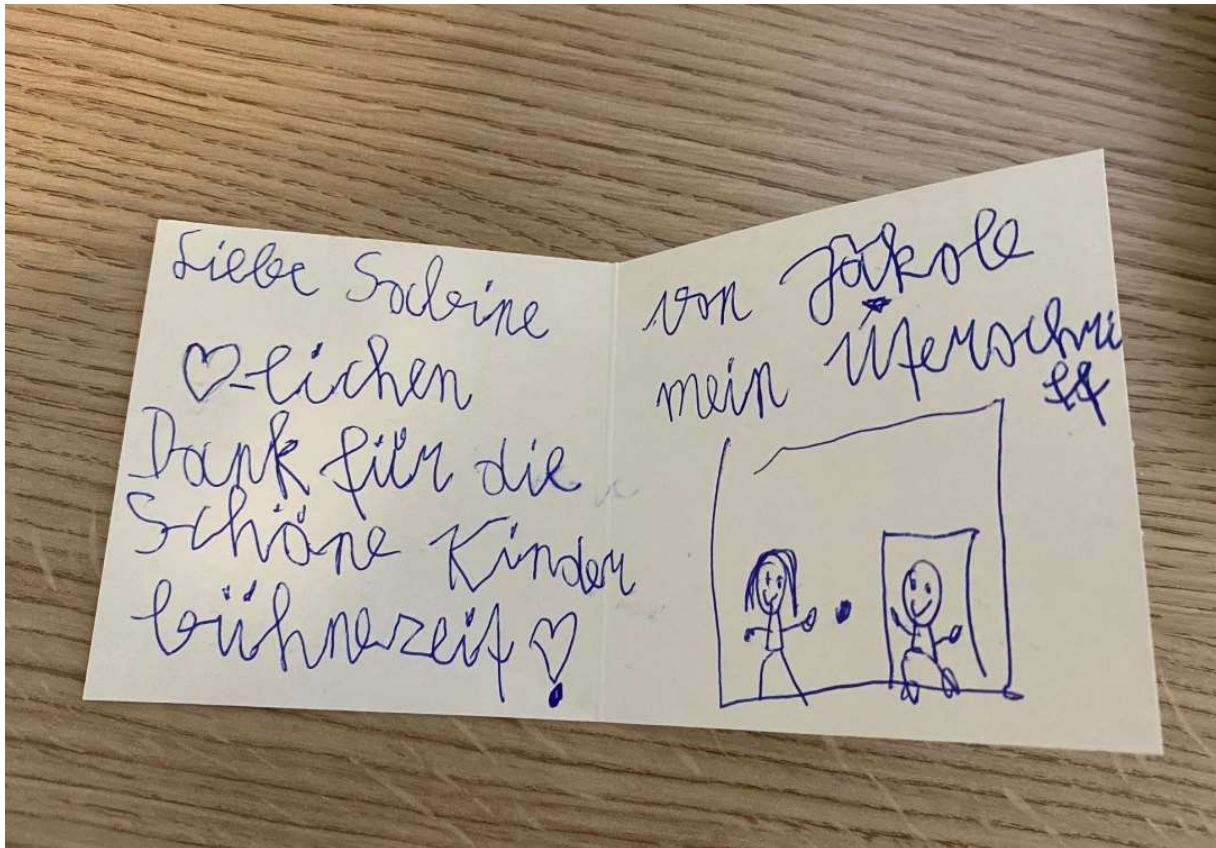 Liebe Sabine
♡-lichen
Dank für die
Schöne Kinder
bühnezeit ♡
von Jakob
mein Üterschri
ft